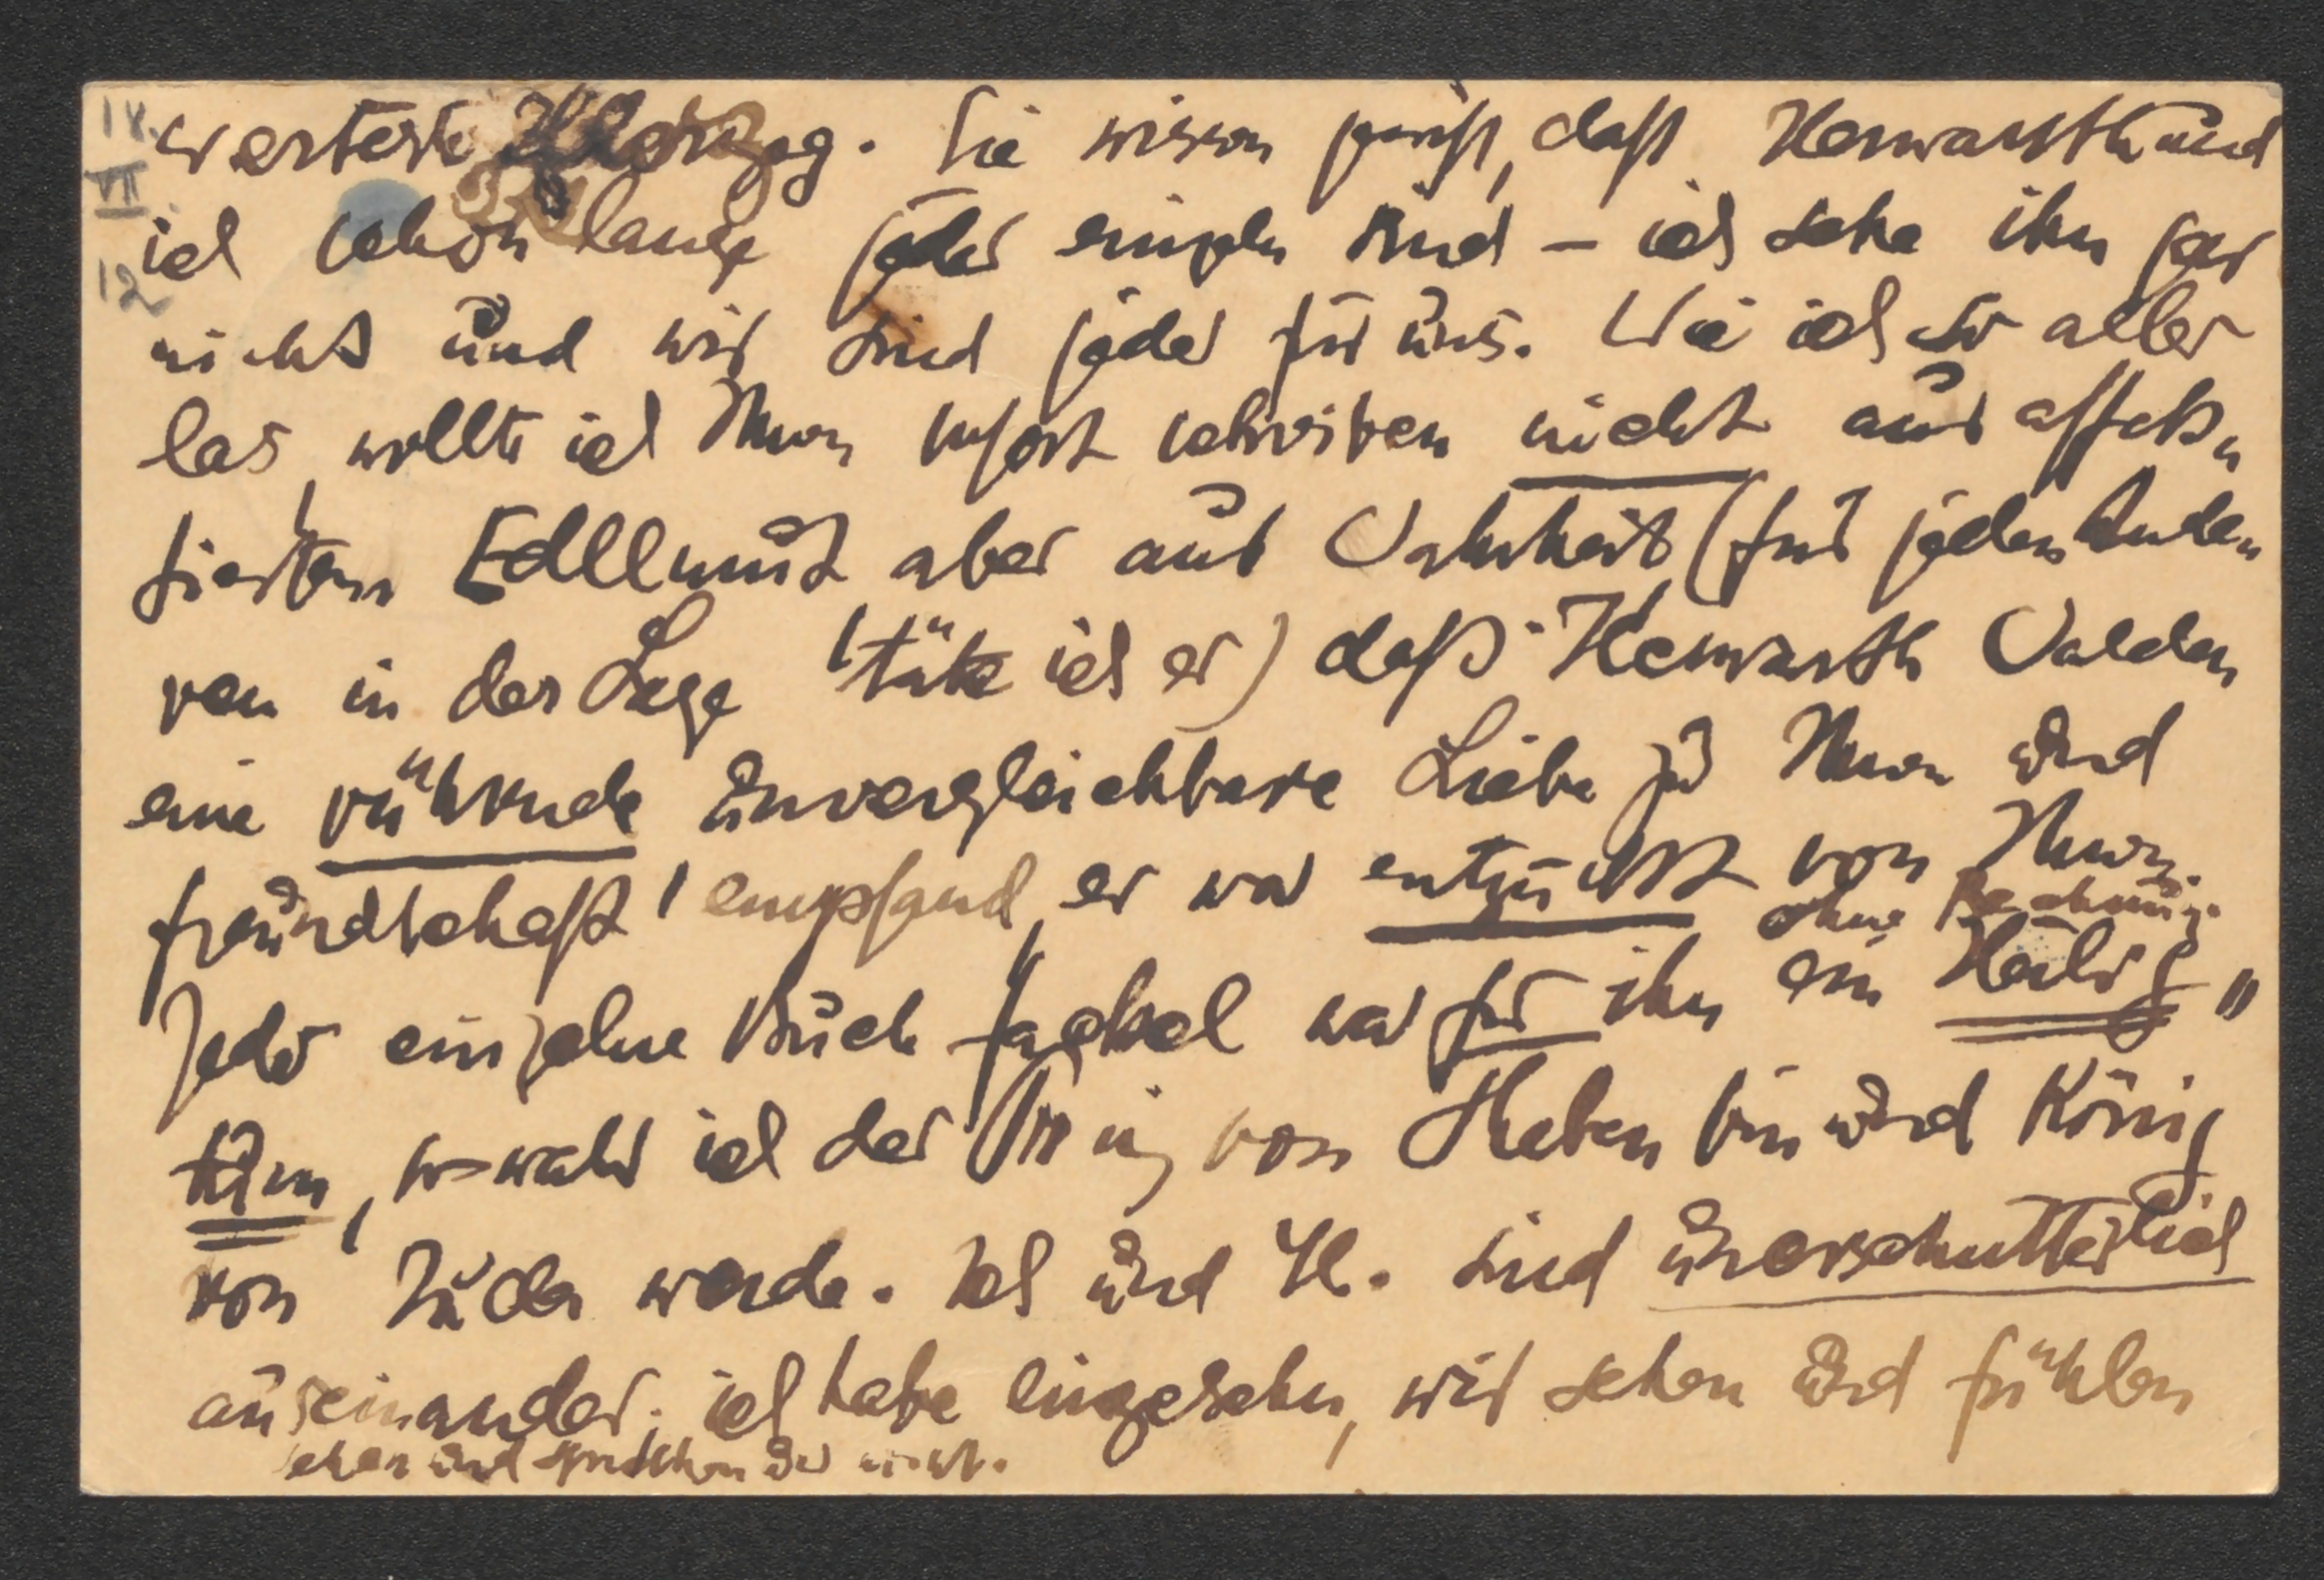 18.
VII
12
werteste Herzog. Sie wissen gewiß, daß Herwarth und
ich schon lange jeder einzeln sind – ich sehe ihn gar
nicht und wir sind jeder für uns. Wie ich es aller
las, wollte ich Ihnen sofort schreiben nicht aus affek„
tiertem Edllmut aber aus Wahrheit, (für jeden Ande„
ren in der Lage täte ich es) daß Herwarth Walden
eine rührende unvergleichbare Liebe zu Ihnen und
freundschaft empfand, er war entzückt von Ihnen.
ohne Rechnung.
Jedes einzelne Buch fackel war für ihn ein Heilig„
tum, so wahr ich der Prinz von Theben bin und König
von Juda werde. Ich und H. sind unerschütterlich
auseinander; ich habe eingesehn, wir sehen und fühlen
sehen und sprechen uns nicht.